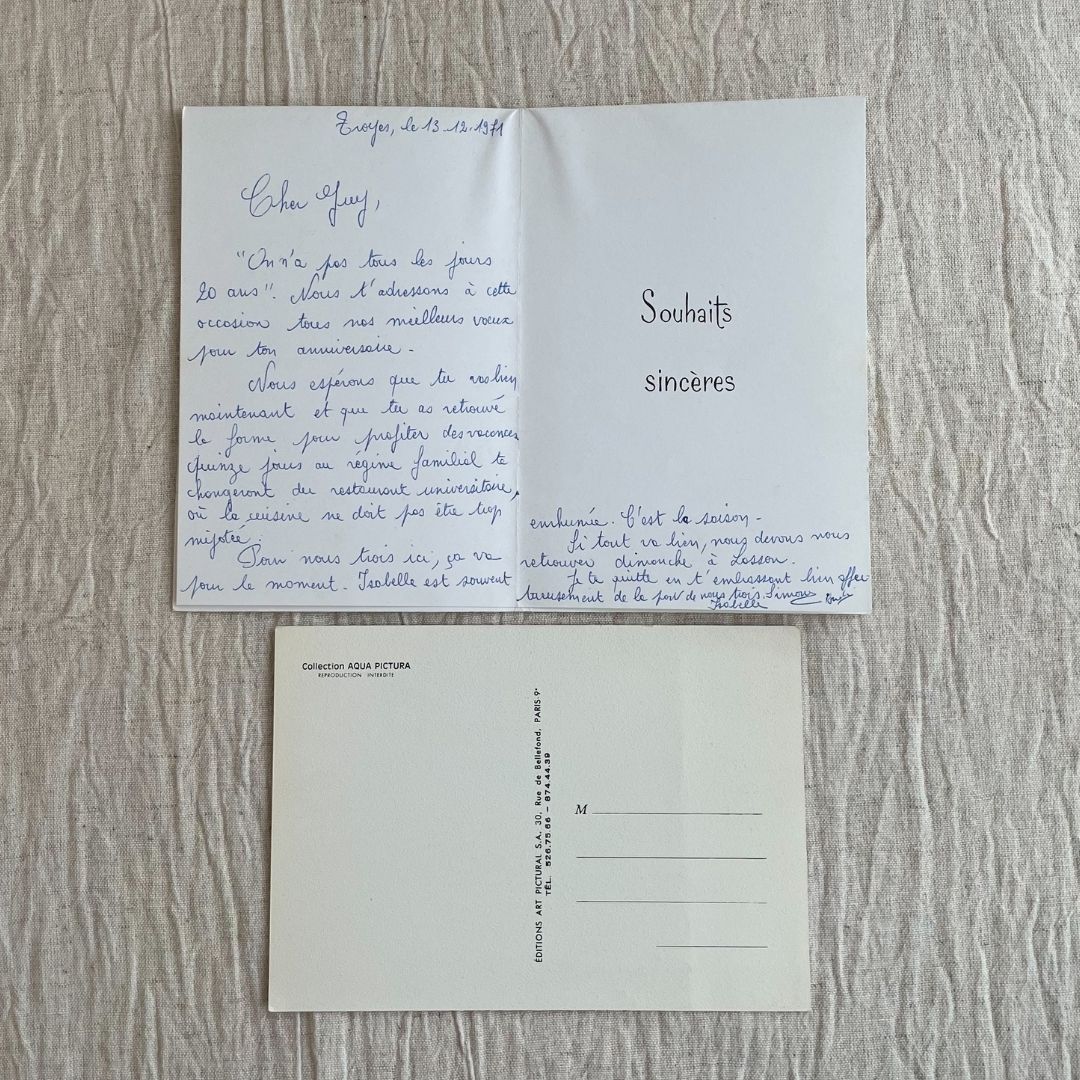 Troyes, le 13.12.1971
Cher Guy,
"On n'a pas tous les jours
20 ans". Nous t'adressons à cette
occasion tous nos meilleurs voeux
pour ton anniversaire -
Nous espérons que tu vas bien
maintenant et que tu as retrouvé
la forme pour profiter des vacances
Quinze jours au régime familial te
changeront du restaurant universitaire,
où la cuisine ne doit pas être trop
mijotée.
Pour nous trois ici, ça va
pour le moment. Isabelle est souvent
Souhaits
sincères
enrhumée. C'est la saison -
Si tout va bien, nous devons nous
retrouver dimanche à Lasson.
Je te quitte en t'embrassant bien affec
tueusement de la part de nous trois. Simone
Isabelle
Collection AQUA PICTURA
REPRODUCTION INTERDITE
ÉDITIONS ART PICTURAL S.A. 30, Rue de Bellefond, PARIS-9e
TÉL. 526.75.66 - 874.44.39
M